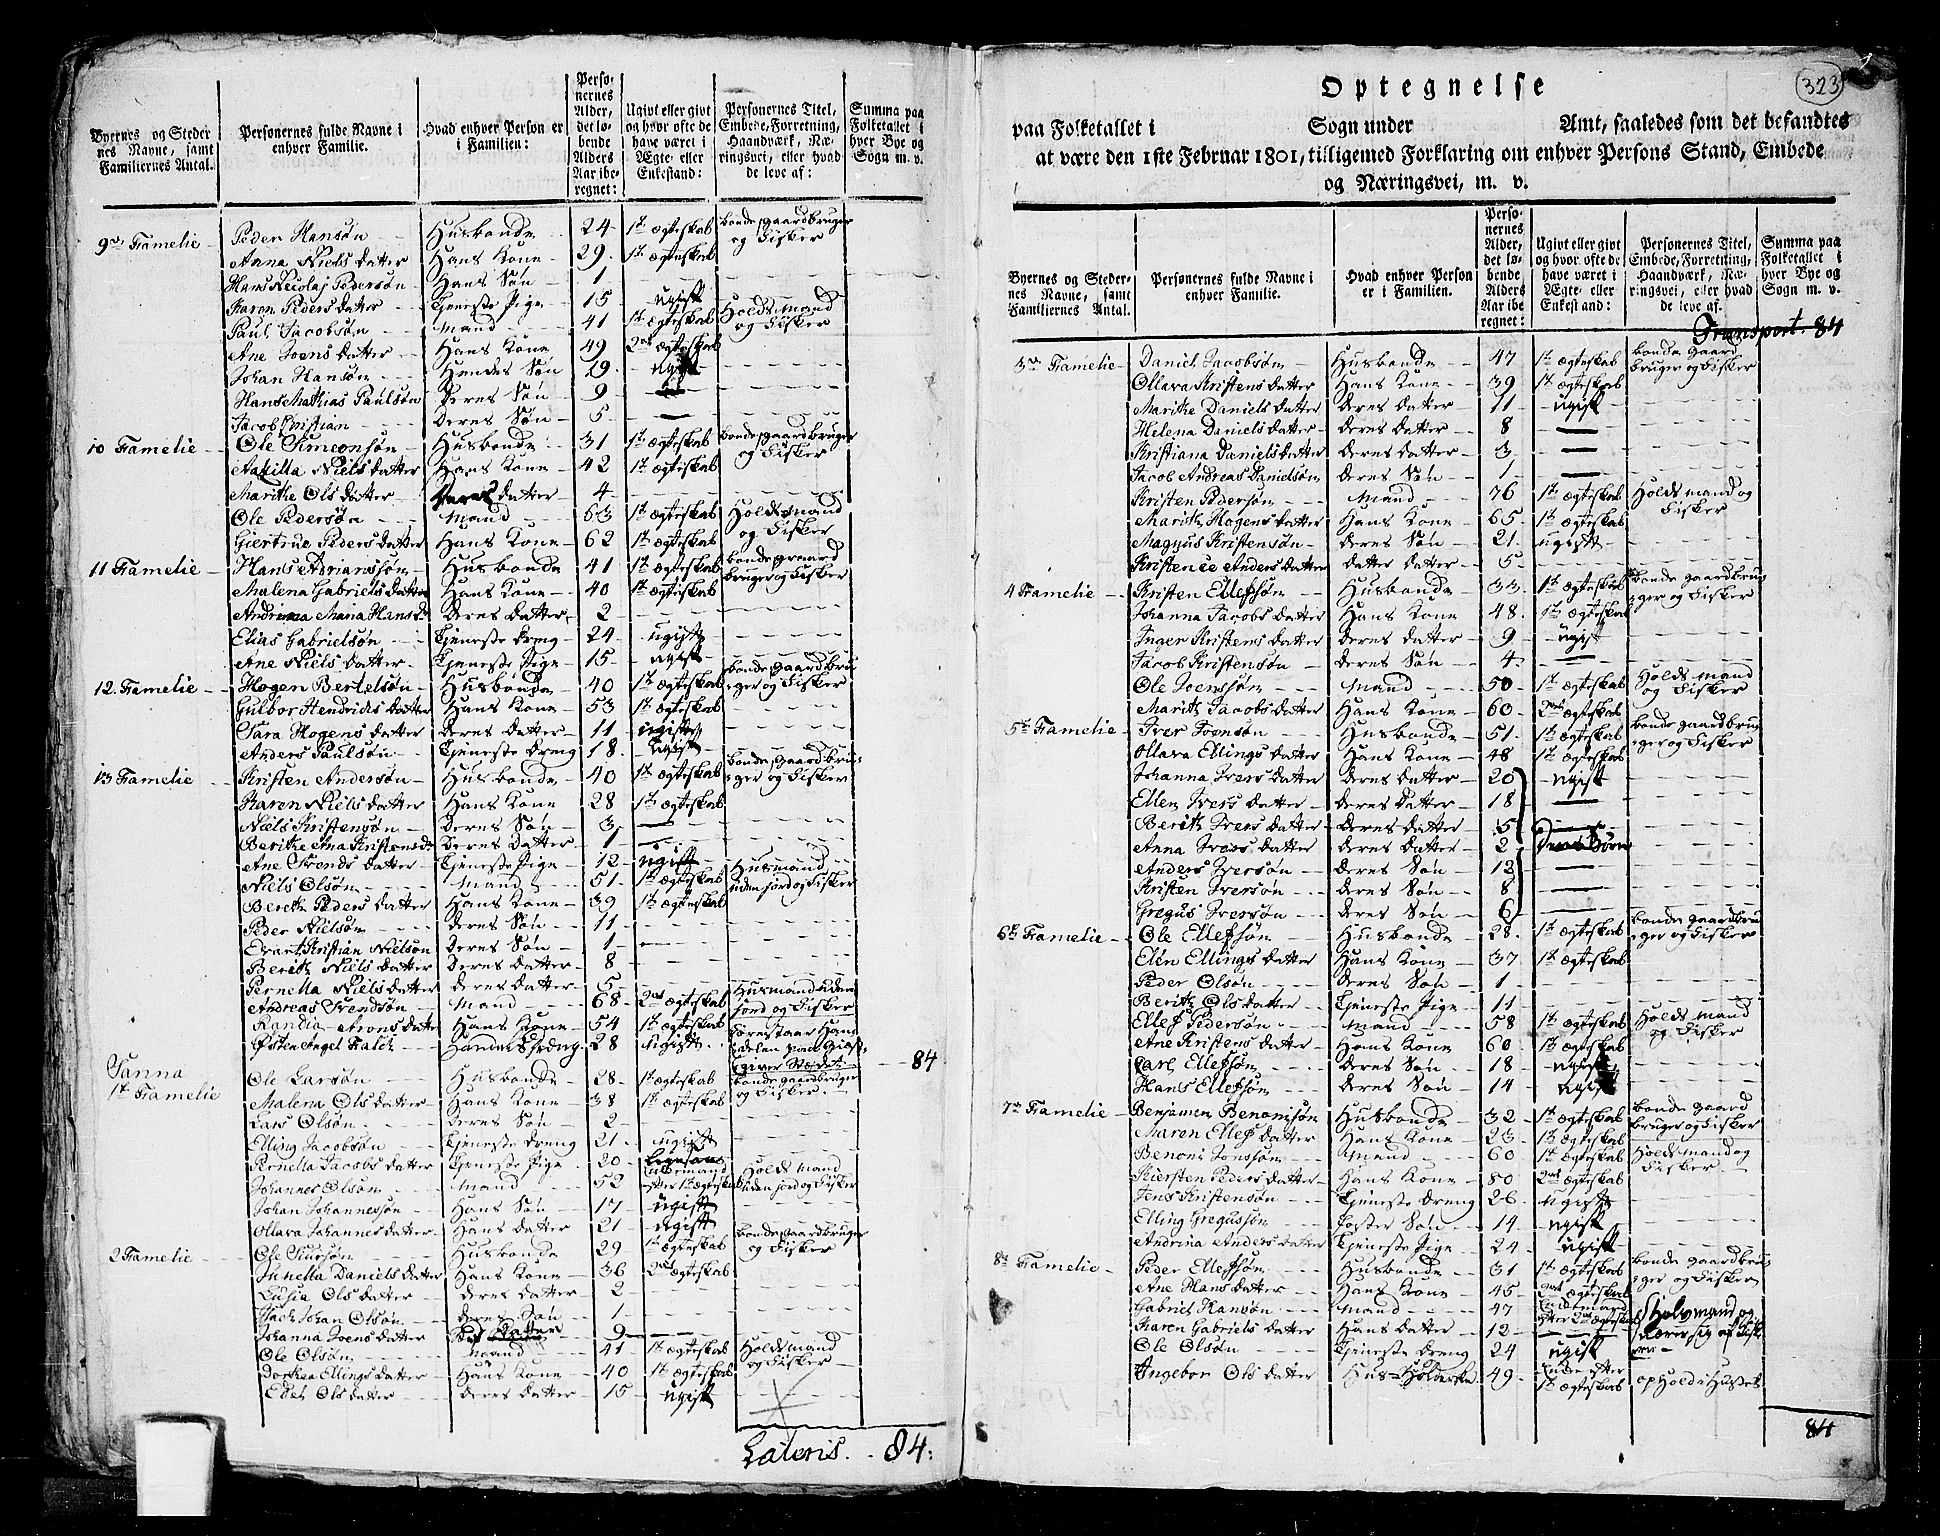 Byernes og Steder nes Navne, samt Familiernes Antal.
Personernes fulde Navne i enhver Familie.
Hvad enhver Person er i Familien:
Personernes Alder, det løbende Alders Aar iberegnet:
Ugivt eller givt og hvor ofte de have været i Ægte- eller Enkestand:
Personernes Titel, Embede, Forretning, Haandværk, Næringsvei, eller hvad de leve af:
Summa paa Folketallet i hver Bye og Sogn m. v.
9de Famelie Peder Hansøn Husbonde 24 1te ægteskab bonde gaardbruger og Fisker
Anna Niels datter Hans Kone 29 1te ægteskab
Hans Nicolaj Pedersøn Hans Søn 1
Karen Peders datter Tjeneste Pige 15 ugift
Paul Jacobsøn Mand 41 1te ægteskab Holds mand og Fisker
Ane Joens datter Hans Kone 49 2det ægteskab
Johan Hansøn Hendes Søn 29 ugift
Hans Mathias Paulsøn Deres Søn 9
Jacob Kristian Deres Søn 5
10 Famelie Ole Simeonsøn Husbonde 31 1te ægteskab bonde gaardbruger og Fisker
Niels datter Hans Kone 42 1te ægteskab
Marithe Ols datter Deres datter 4
Ole Pedersøn Mand 63 1te ægteskab Holds mand og Fisker
Giertrue Peders datter Hans Kone 62 1te ægteskab
11 Famelie Hans Adrianssøn Husbonde 41 1te ægteskab bonde gaard bruger og Fisker
Malena Gabriels datter Hans Kone 40 1te ægteskab
Andrina Maria Hans dr Deres datter 2
Elias Gabrielsøn Tjeneste dreng 24 ugift
Ane Niels datter Tjeneste Pige 15 ugift
12 Famelie Hogen Bertelsøn Husbonde 40 1te ægteskab bonde gaardbruger og Fisker
Gulbor Hendrichs datter Hans Kone 53 1te ægteskab
Sara Hogens datter Deres datter 11 ugift
Anders Paulsøn Tjeneste Dreng 18 ugift
13 Famelie Kristen Andersøn Husbonde 40 1te ægteskab bonde gaardbruger og Fisker
Karen Niels datter Hans Kone 28 1te ægteskab
Niels Kristensøn Deres Søn 3
Berithe Ana Kristensdr Deres datter 1
Ane Svends datter Tjeneste Pige 12 ugift
Niels Olsøn Mand 51 1te ægteskab Husmand uden jord og Fisker
Bereth Peders datter Hans Kone 39 1te ægteskab
Peder Nielsøn Deres Søn 11
Evart Kristian Nielsøn Deres Søn 1
Berith Niels datter Deres datter 8
Pernella Niels datter Deres datter 5
Andreas Svendsøn Mand 68 2det ægteskab Husmand uden jord og Fisker
Randia Arons datter Hans Kone 54 1te ægteskab
Østen Angel Falch Handels dreng 28 ugift Forestaar Handelen paa
84
Sanna
1te Famelie Ole Larsøn Husbonde 28 1te ægteskab bonde gaardbruger og Fisker
Malena Ols datter Hans Kone 38 1te ægteskab
Lars Olsøn Deres Søn 2
Elling Jacobsøn Tjeneste dreng 21 ugift
Pernella Jacobs datter Tjeneste Pige 20
Johannes Olsøn Mand 52 Enkemand efter 1te ægteskab Holds mand uden jord og Fisker
Johan Johannessøn Hans Søn 17 ugift
Ollava Johannes datter Hans datter 21 ugift
2 Famelie Ole Siursøn Husbonde 29 1te ægteskab bonde gaardbruger og Fisker
Daniels datter Hans Kone 36 2det ægteskab
Lusia Ols datter Deres datter 2
Johan Olsøn Deres Søn 1
Johanna Joens datter 9
Ole Olsøn Mand 41 1te ægteskab Holds mand og Fisker
Dorthea Ellings datter Hans Kone 40 1te ægteskab
Ols datter Deres datter 15 ugift
Lateris. 84:
323
Optegnelse
paa Folketallet i Sogn under Amt, saaledes som det befandtes
at være den 1ste Februar 1801, tilligemed Forklaring om enhver Persons Stand, Embede
og Næringsvei, m. v.
Byernes og Stedernes Navne, samt Familiernes Antal.
Personernes fulde Navne i enhver Familie.
Hvad enhver Person er i Familien.
Personernes Alder, det løbende Alders Aar iberegnet:
Ugivt eller givt og hvor ofte de have været i Ægte- eller Enkestand:
Personernes Titel, Embede, Forretning, Haandværk, Næringsvei, eller hvad de leve af.
Summa paa Folketallet i hver Bye og Sogn m. v.
Transport. 84
3de Famelie Daniel Jacobsøn Husbonde 47 1te ægteskab bonde gaard bruger og Fisker
Ollava Kristens datter Hans Kone 39 1te ægteskab
Marithe Daniels datter Deres datter 11 ugift
Helena Daniels datter Deres datter 8
Kristiana Daniels datter Deres datter 3
Jacob Andreas Danielsøn Deres Søn 1
Kristen Pedersøn Mand 76 1te ægteskab Holds mand og Fisker
Marith Hogens datter Hans Kone 65 1te ægteskab
Magnus Kristensøn Deres Søn 21 ugift
Kristence Anders datter datter datter 5
4 Famelie Kristen Ellefsøn Husbonde 33 1te ægteskab bonde gaardbruger og Fisker
Johanna Jacobs datter Hans Kone 48 1te ægteskab
Inger Kristens datter Deres datter 9 ugift
Jacob Kristensøn Deres Søn 4
Ole Joenssøn Mand 50 1te ægteskab Holds mand og Fisker
Marith Jacobs datter Hans Kone 60 2det ægteskab
5te Famelie Iver Joensøn Husbonde 51 1te ægteskab bonde gaardbruger og Fisker
Ollava Ellings datter Hans Kone 48 1te ægteskab
Johanna Ivers datter Deres datter 20 ugift
Ellen Ivers datter Deres datter 18
Berith Ivers datter Deres datter 5
Anna Ivers datter Deres datter 2
Anders Iversøn Deres Søn 12
Kristen Iversøn Deres Søn 8
Gregus Iversøn Deres Søn 6
6te Famelie Ole Ellefsøn Husbonde 28 1te ægteskab bonde gaardbruger og Fisker
Elen Ellings datter Hans Kone 37 1te ægteskab
Peder Olsøn Deres Søn 1
Berith Ols datter Tjeneste Pige 11
Ellef Pedersøn Mand 58 1te ægteskab Holds mand og Fisker
Ane Kristens datter Hans Kone 60 1te ægteskab
Carl Ellefsøn Deres Søn 18 ugift
Hans Ellefsøn Deres Søn 14 ugift
7de Famelie Benjamin Benonisøn Husbonde 32 1te ægteskab bonde gaard bruger og Fisker
Maren Ellefs datter Hans Kone 23 1te ægteskab
Benoni Jonssøn Mand 60 1te ægteskab Holds mand og Fisker
Kiersten Peders datter Hans Kone 80 2det ægteskab
Jens Kristensøn Tjeneste Dreng 26 ugift
Elling Gregussøn Foster Søn 14 ugift
Andrina Anders datter Tjeneste Pige 24 ugift
8de Famelie Peder Ellefsøn Husbonde 31 1te ægteskab bonde gaardbruger og Fisker
Ane Hans datter Hans Kone 45 2det ægteskab
Gabriel Hansøn Mand 47 Enkemand efter 2det ægteskab Holds mand og nærer sig af Fiskerie
Karen Gabriels datter Hans datter 12
Ole Olsøn Tjeneste Dreng 24 ugift
Ingebor Ols datter 49 Enke efter 1te ægteskab opHold i Huset
84